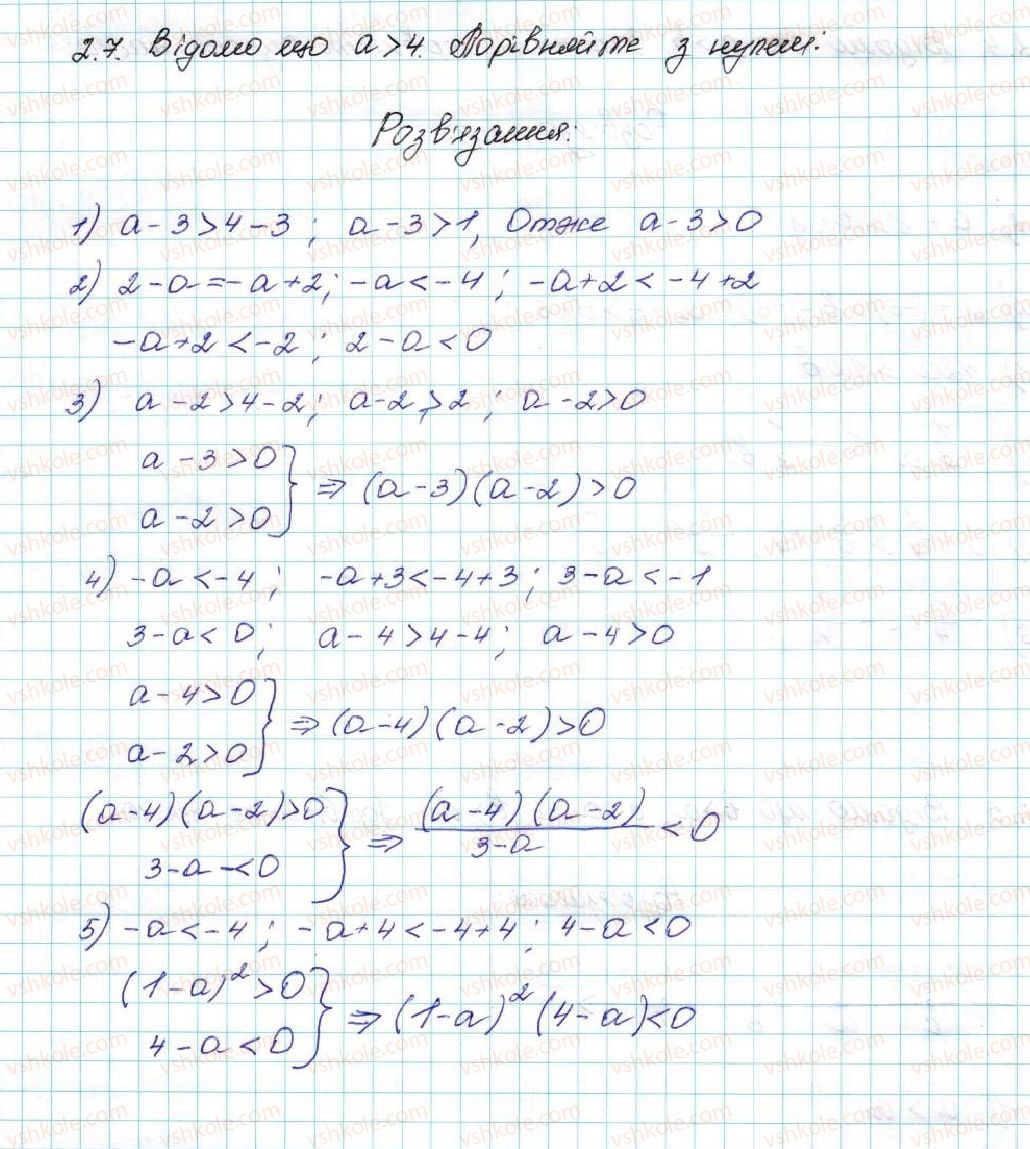 2.7. Відомо що a>4. Порівняйте з нулем:
Розв'язання:
1) a-3>4-3; a-3>1, Отже a-3>0
2) 2-a=-a+2; -a<-4; -a+2<-4+2
-a+2<-2; 2-a<0
3) a-2>4-2; a-2>2; a-2>0
a-3>0
a-2>0 } ⇒ (a-3)(a-2)>0
4) -a<-4; -a+3<-4+3; 3-a<-1
3-a<0; a-4>4-4; a-4>0
a-4>0
a-2>0 } ⇒ (a-4)(a-2)>0
(a-4)(a-2)>0
3-a<0 } ⇒ (a-4)(a-2)/3-a <0
5) -a<-4; -a+4<-4+4; 4-a<0
(1-a)²>0
4-a<0 } ⇒ (1-a)²(4-a)<0
vshkole.com